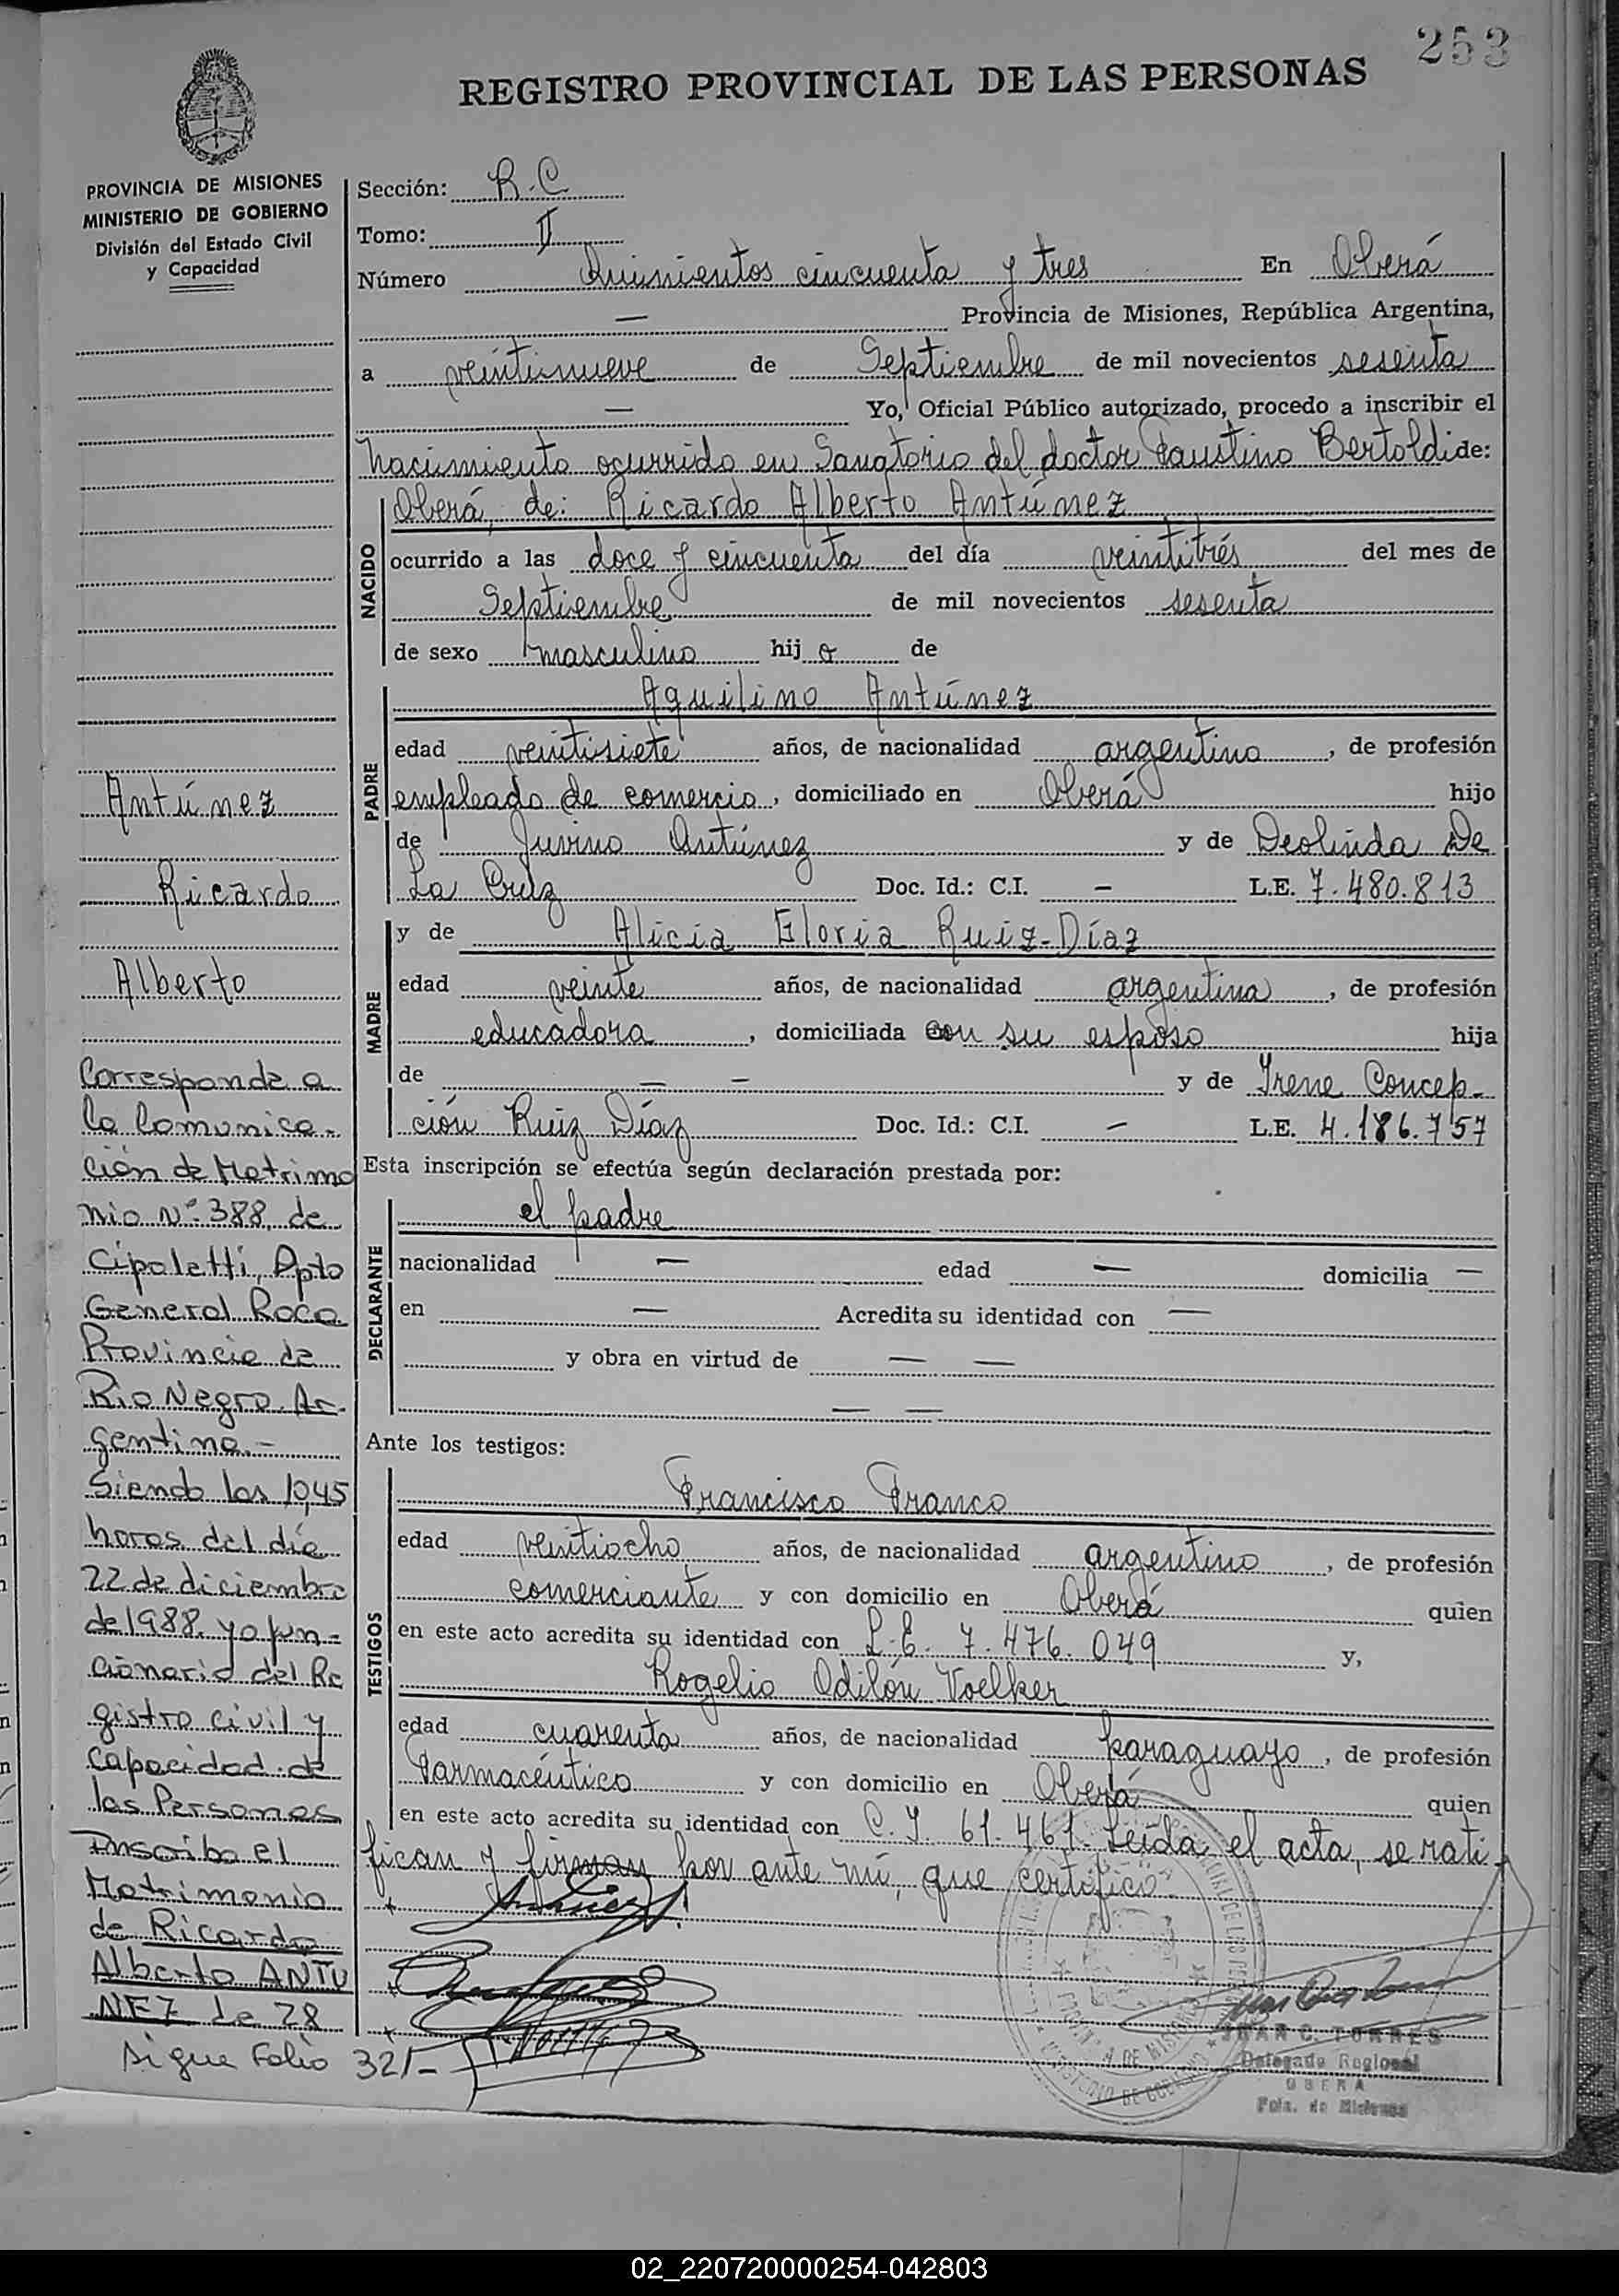 253
REGISTRO PROVINCIAL DE LAS PERSONAS
PROVINCIA DE MISIONES
MINISTERIO DE GOBIERNO
División del Estado Civil
y Capacidad
Antúnez
Ricardo
Alberto
Corresponde a
la Comunica-
ción de Matrimo
nio Nº 388, de
Cipoletti, Dpto
General Roca
Provincia de
Rio Negro. Ar-
gentina.-
Siendo las 10,45
horas del día
22 de diciembre
de 1988, yo fun-
cionario del Re
gistro civil y
capacidad de
las Personas
Inscribo el
Matrimonio
de Ricardo
Alberto ANTU
NEZ de 28
Sigue Folio 321-
Sección: R.C
Tomo: II
Número Quinientos cincuenta y tres En Oberá
— Provincia de Misiones, República Argentina,
a veintinueve de Septiembre de mil novecientos sesenta
— Yo, Oficial Público autorizado, procedo a inscribir el
nacimiento ocurrido en Sanatorio del doctor Faustino Bertoldi de:
NACIDO
Oberá, de: Ricardo Alberto Antúnez
ocurrido a las doce y cincuenta del día veintitrés del mes de
Septiembre de mil novecientos sesenta
de sexo masculino hijo de
PADRE
Aquilino Antúnez
edad veintisiete años, de nacionalidad argentino, de profesión
empleado de comercio, domiciliado en Oberá hijo
de Juvino Antúnez y de Deolinda De
La Cruz Doc. Id.: C.I. — L.E. 7.480.813
MADRE
y de Alicia Gloria Ruiz-Díaz
edad veinte años, de nacionalidad argentina, de profesión
educadora, domiciliada con su esposo hija
de — — y de Irene Concep-
ción Ruiz Díaz Doc. Id.: C.I. — L.E. 4.186.757
Esta inscripción se efectúa según declaración prestada por:
DECLARANTE
el padre
nacionalidad — edad — domicilia —
en — Acredita su identidad con —
y obra en virtud de — —
— —
Ante los testigos:
TESTIGOS
Francisco Franco
edad veintiocho años, de nacionalidad argentino, de profesión
comerciante y con domicilio en Oberá quien
en este acto acredita su identidad con L.E. 7.476.049 y,
Rogelio Odilón Voelker
edad cuarenta años, de nacionalidad paraguayo, de profesión
Farmacéutico y con domicilio en Oberá quien
en este acto acredita su identidad con C.I. 61.461. Leída el acta, se rati-
fican y firman por ante mí, que certifico.
JUAN C. TORRES
Delegado Regional
OBERA
Pcia. de Misiones
02_220720000254-042803